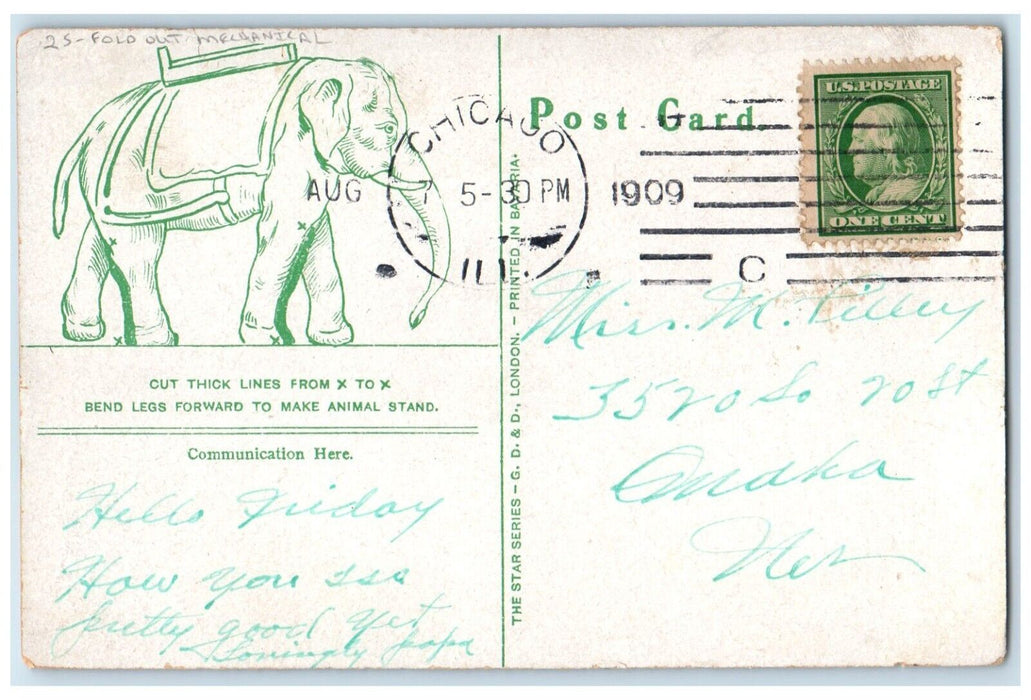 25- FOLD OUT MECHANICAL
CUT THICK LINES FROM X TO X
BEND LEGS FORWARD TO MAKE ANIMAL STAND.
Communication Here.
Hello Friday
How you
pretty good yet
Lovingly papa
THE STAR SERIES – G. D. & D., LONDON. – PRINTED IN BAVARIA.
Post Card.
U.S. POSTAGE
ONE CENT
CHICAGO
AUG 7 5-30 PM 1909
ILL.
C
Miss. M.
3520 So 20 St
Omaha
Neb